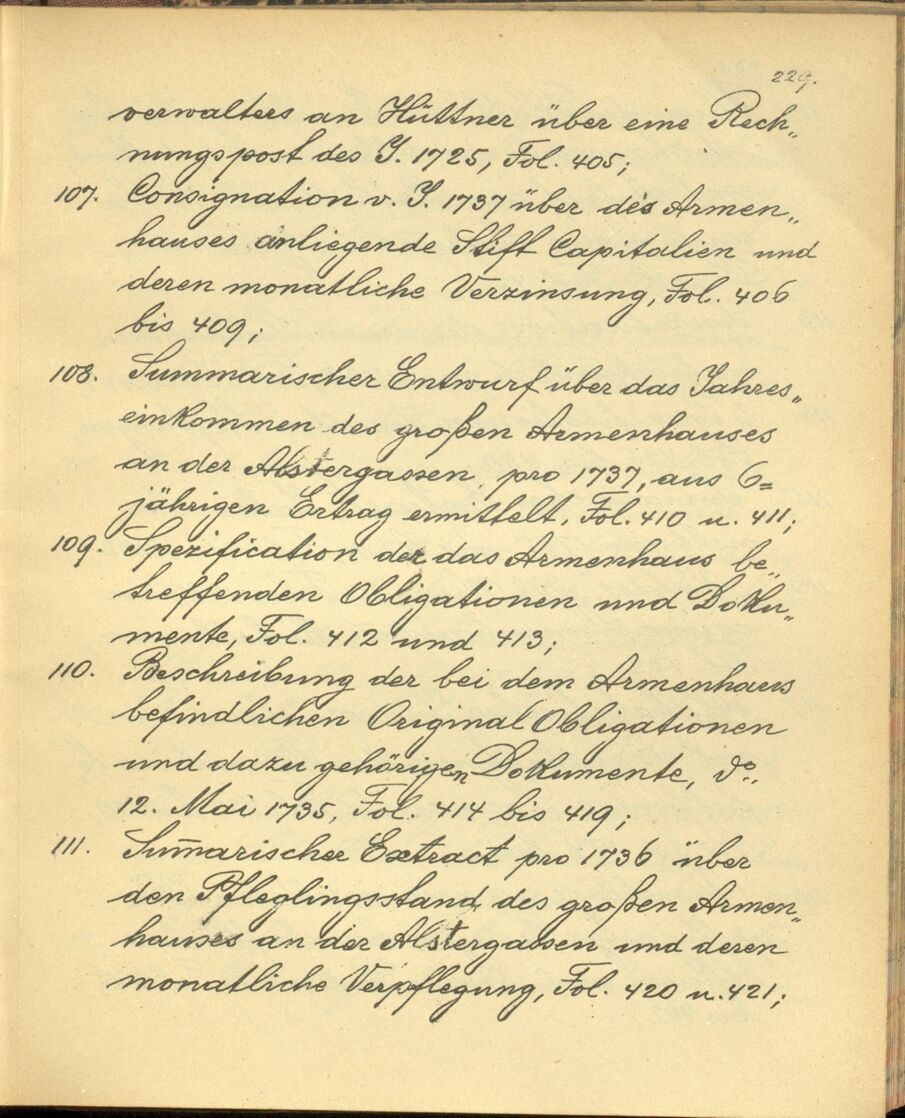 229.
verwalters an Hüttner über eine Rech„
nungspost des J. 1725, Fol. 405;
107. Consignation v. J. 1737 über des Armen„
hauses anliegende Stift Capitalien und
deren monatliche Verzinsung, Fol. 406
bis 409;
108. Summarischer Entwurf über das Jahres„
einkommen des großen Armenhauses
an der Alstergassen, pro 1737, aus 6=
jährigen Ertrag ermittelt, Fol. 410 u. 411;
109. Spezification der das Armenhaus be„
treffenden Obligationen und Doku„
mente, Fol. 412 und 413;
110. Beschreibung der bei dem Armenhaus
befindlichen Original Obligationen
und dazu gehörigen Dokumente, do.
12. Mai 1735, Fol. 414 bis 419;
111. Sum̅arischer Extract pro 1736 über
den Pfleglingsstand des großen Armen„
hauses an der Alstergassen und deren
monatliche Verpflegung, Fol. 420 u. 421;